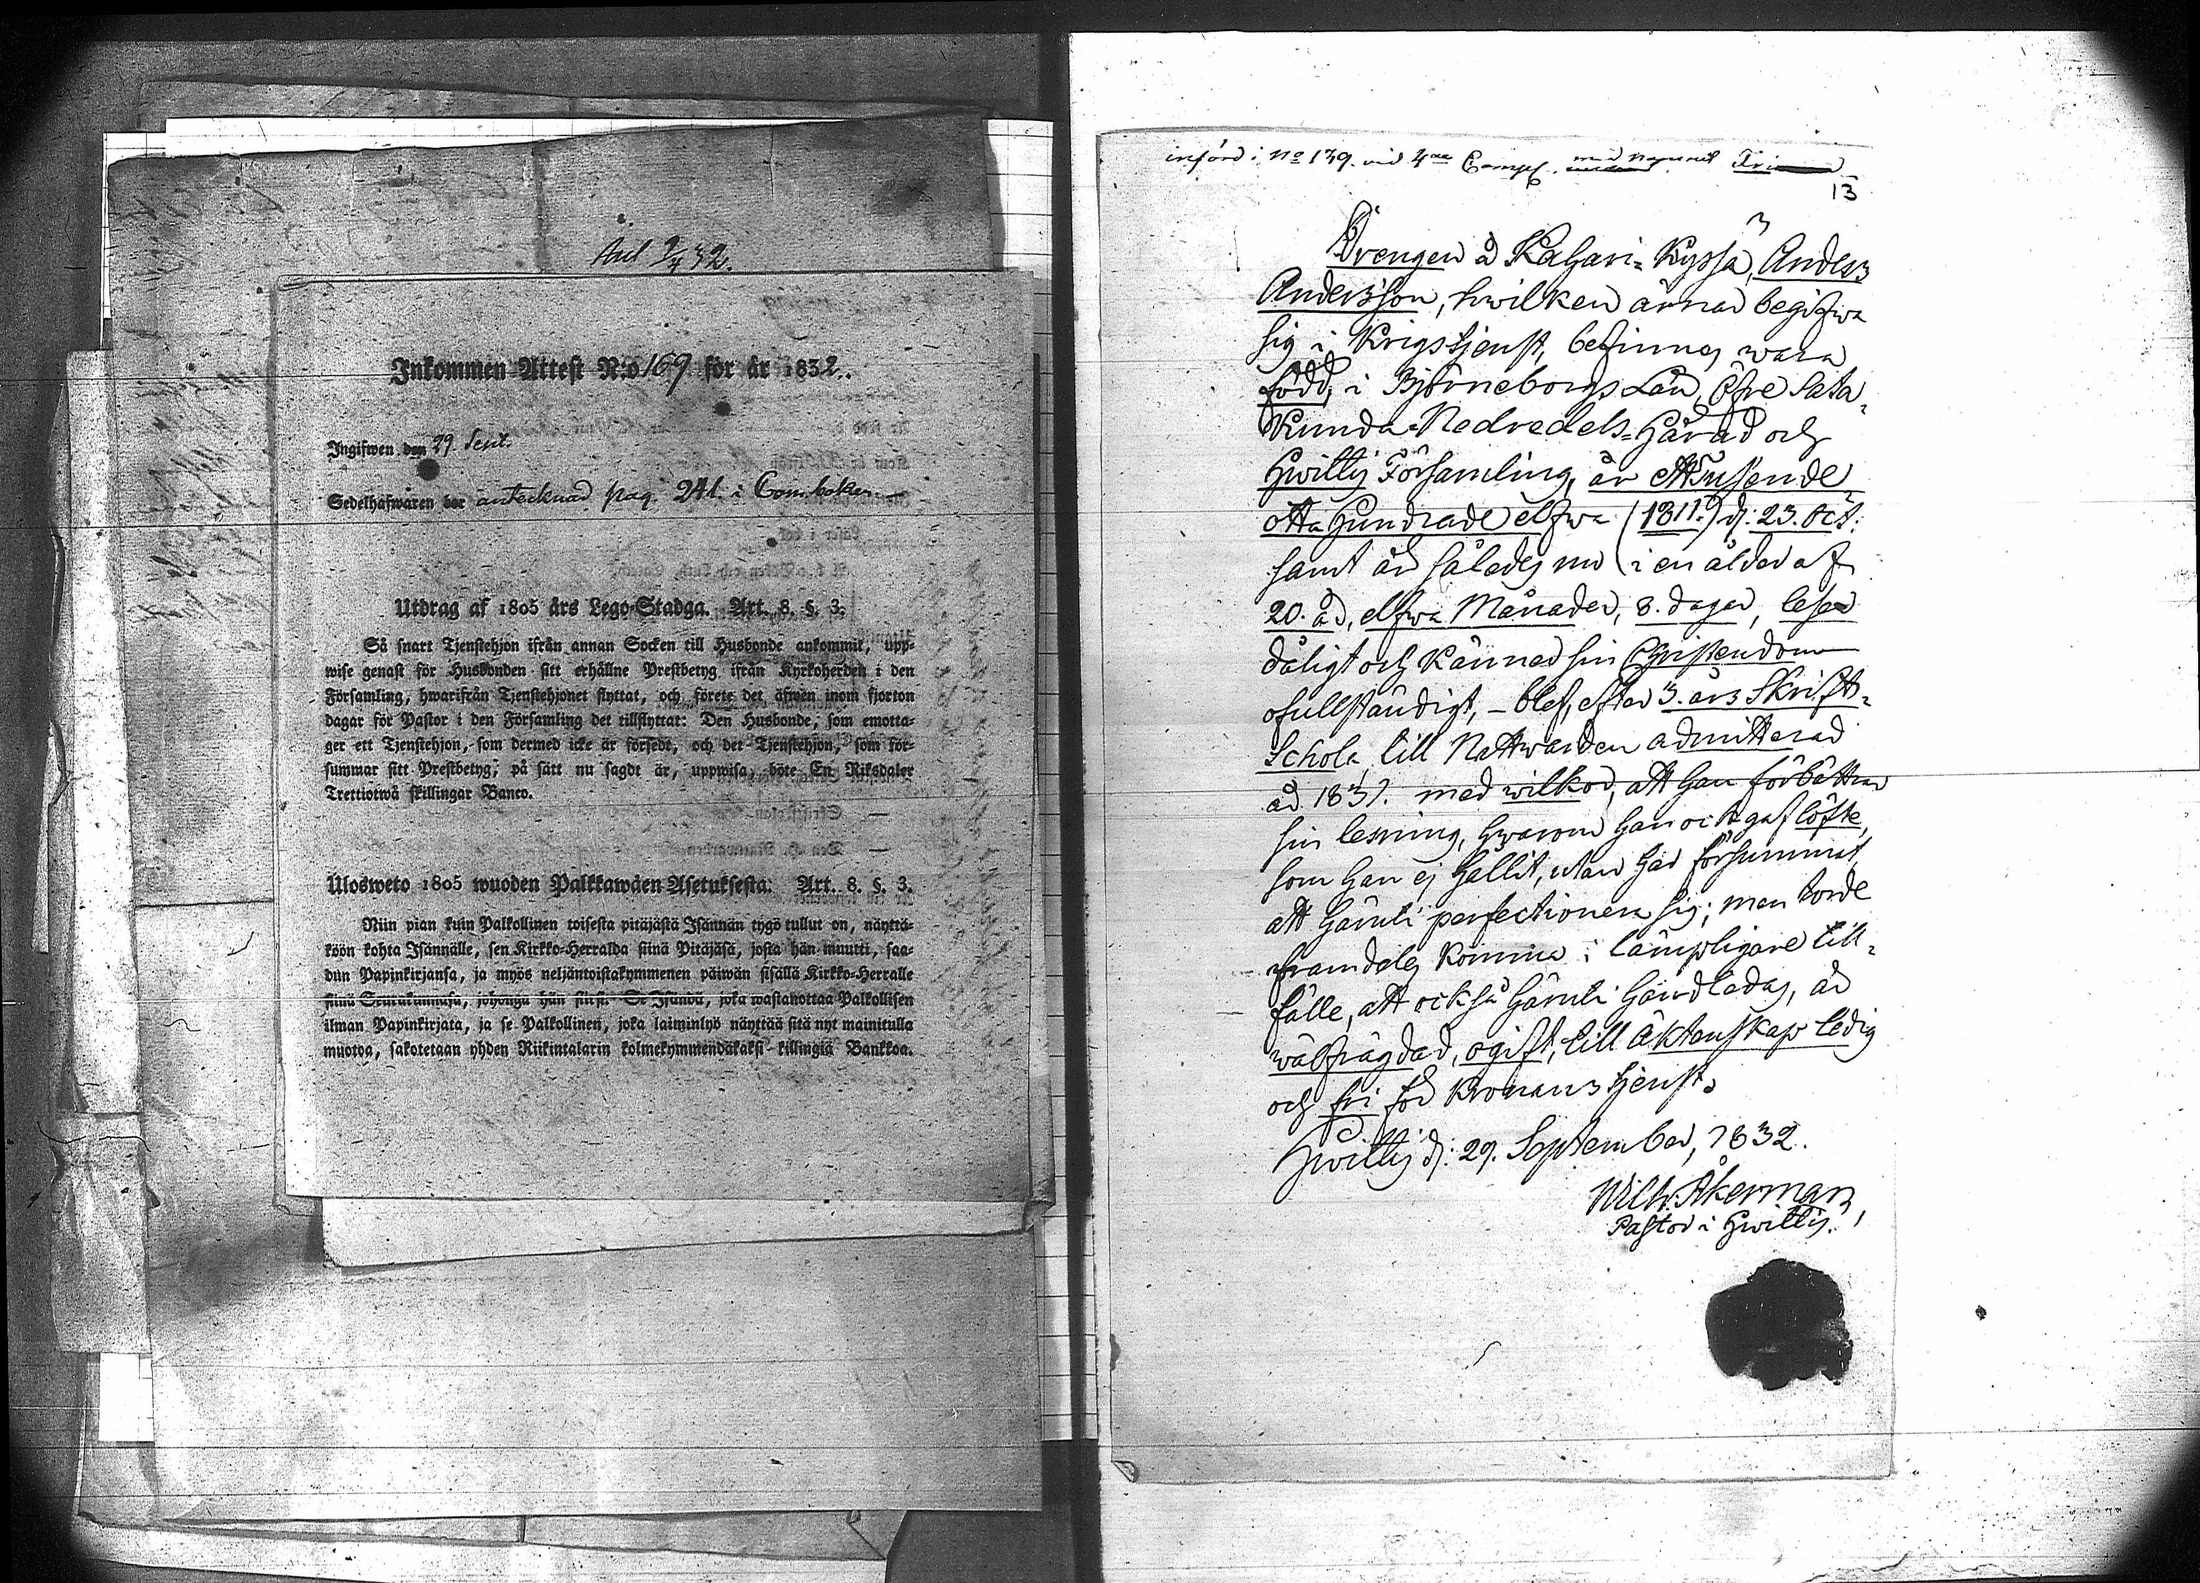 Aul 9/4 32.
Inkommen Attest N:o 169 för år 1832.
Ingifwen den 29. Sept.
Sedelhafwaren är antecknad pag. 241. i Com.boken
Utdrag af 1805 års Lego-Stadga. Art. 8. §. 3.
Så snart Tjenstehjon ifrån annan Socken till Husbonde ankommit, upp-
wise genast för Husbonden sitt erhållne Prestbetyg ifrån Kyrkoherden i den
Församling, hwarifrån Tjenstehjonet flyttat, och förete det äfwen inom fjorton
dagar för Pastor i den Församling det tillflyttat: Den Husbonde, som emotta-
ger ett Tjenstehjon, som dermed icke är försedt, och det Tjenstehjon, som för-
summar sitt Prestbetyg, på sätt nu sagdt är, uppwisa, böte En Riksdaler
Trettiotwå skillingar Banco.
Ulosweto 1805 wuoden Palkkawäen Asetuksesta: Art. 8. §. 3.
Niin pian kuin Palkollinen toisesta pitäjästä Isännän tygö tullut on, näyttä-
köön kohta Isännälle, sen Kirkko-Herralda siinä Pitäjäsä, josta hän muutti, saa-
dun Papinkirjansa, ja myös neljäntoistakymmenen päiwän sisällä Kirkko-Herralle
siinä Seurakunnasa, johonga hän siirsi. Se Isändä, joka wastanottaa Palkollisen
ilman Papinkirjata, ja se Palkollinen, joka laiminlyö näyttää sitä nyt mainitulla
muotoa, sakotetaan yhden Riikintalarin kolmekymmendäkaksi killingiä Bankkoa.
införd i No 139. vid 4de Comp. med Namnet
13
Drengen å Kahari-Kyssä, Anders
Andersson, hwilken ärnar begifwa
sig i Krigstjenst, befinnes wara
född, i Björneborgs Län, Öfre Sata-
kunda Nedredels-Härad och
Hwittis Församling, år Ettusende
åtta Hundrade elfwa (1811.) d: 23. Oct:
samt är således nu i en ålder af
20. år, elfwa Månader, 8. dagar, leser
dåligt och känner sin Christendom
ofullständigt, – blef, efter 3. års Skrift-
Schola, till Nattwarden admitterad
år 1831. med wilkor, att han förbättrar
sin lesning, hwarom han ock gaf löfte,
som han ej hållit, utan har försummat
att häruti perfectionera sig; men torde
framdeles komma i lämpligare till-
fälle, att också häruti handledas, är
wälfrägdad, ogift, till äktenskap ledig
och fri för Kronans tjenst.
Hwittis d: 29. September, 1832.
Wilh. Åkerman,
Pastor i Hwittis.